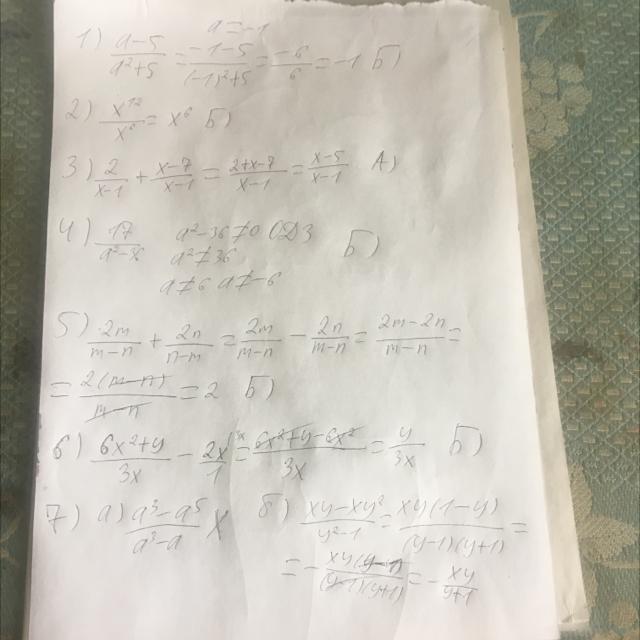 a=-1
1) (a-5)/(a²+5) = (-1-5)/((-1)²+5) = -6/6 = -1 Б)
2) x¹²/x⁶ = x⁶ Б)
3) 2/(x-1) + (x-7)/(x-1) = (2+x-7)/(x-1) = (x-5)/(x-1) А)
4) 17/(a²-x) a²-36≠0 ОДЗ Б)
a²≠36
a≠6 a≠-6
5) 2m/(m-n) + 2n/(n-m) = 2m/(m-n) - 2n/(m-n) = (2m-2n)/(m-n) =
= 2(m-n)/(m-n) = 2 Б)
6) (6x²+y)/3x - 2x/1 = (6x²+y-6x²)/3x = y/3x Б)
7) а) (a³-a⁵)/(a²-a) X б) (xy-xy²)/(y²-1) = xy(1-y)/((y-1)(y+1)) =
= -xy(y-1)/((y-1)(y+1)) = -xy/(y+1)